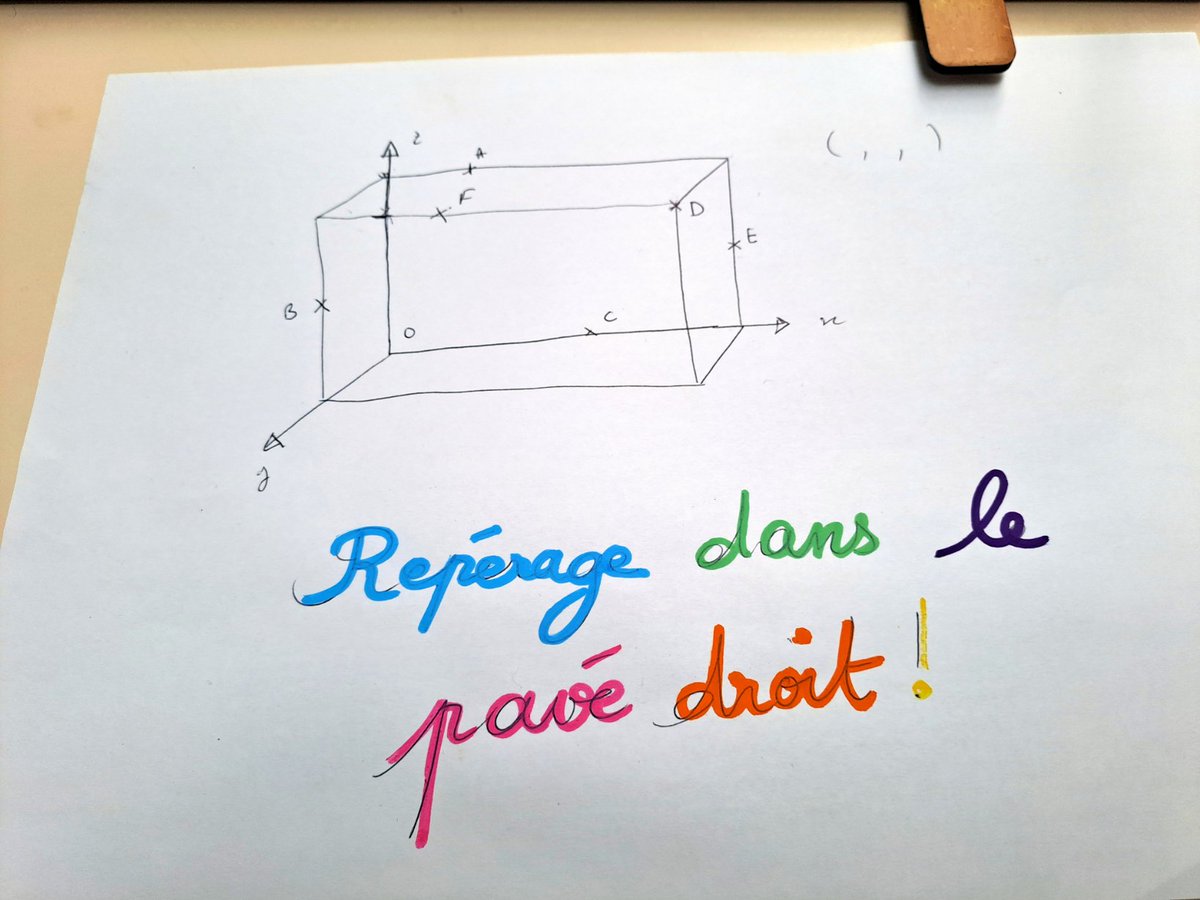 z
A
( , , )
F
D
E
B
O
C
x
y
Repérage dans le
pavé droit !